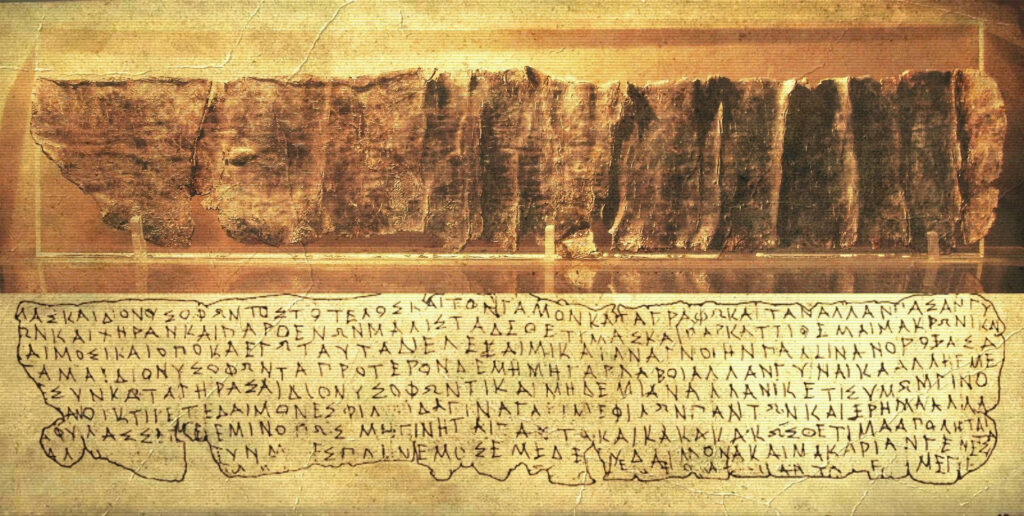 ΜΑΣΚΑΙΔΙΟΝΥΣΟΦΩΝΤΟΣΤΟΤΕΛΟΣΚΑΙΤΟΝΓΑΜΟΝΚΑΤΑΓΡΑΦΩΚΑΙΤΑΝΑΛΛΑΝΠΑΣΑΝΓΥ
ΩΝΚΑΙΧΗΡΑΝΚΑΙΠΑΡΘΕΝΩΝΜΑΛΙΣΤΑΔΕΘΕΤΙΜΑΣΚΑΙΠΑΡΚΑΤΤΙΘΕΜΑΙΜΑΚΡΩΝΙΚΑΙ
ΑΙΜΟΣΙΚΑΙΟΠΟΚΑΕΓΩΤΑΥΤΑΔΙΕΛΕΞΑΙΜΙΚΑΙΑΝΑΓΝΟΙΗΝΠΑΛΙΝΑΝΟΡΟΞΑΣΑ
ΓΑΜΑΙΔΙΟΝΥΣΟΦΩΝΤΑΠΡΟΤΕΡΟΝΔΕΜΗΜΗΓΑΡΛΑΒΟΙΑΛΛΑΝΓΥΝΑΙΚΑΑΛΛΗΕΜΕ
ΕΣΥΝΚΑΤΑΓΗΡΑΣΑΙΔΙΟΝΥΣΟΦΩΝΤΙΚΑΙΜΗΔΕΜΙΑΝΑΛΛΑΝΙΚΕΤΙΣΥΜΩΜΓΙΝΟ
ΑΝΟΙΚΤΙΡΕΤΕΔΑΙΜΟΝΕΣΦΙΛ ΙΔΑΓΙΝΑΓΑΡΙΜΕΦΙΛΩΝΠΑΝΤΩΝΚΑΙΕΡΗΜΑΑΛΛΑ
ΦΥΛΑΣΣΕΤΕΕΜΙΝΟΠΩΣΜΗΓΙΝΗΤΑΙΤΑΥΤΑΚΑΙΚΑΚΑΚΑΚΩΣΘΕΤΙΜΑΑΠΟΛΗΤΑΙ
ΥΝΜ ΕΣΠΛΗΝΕΜΟΣΕΜΕΔΕΕΥΔΑΙΜΟΝΑΚΑΙΜΑΚΑΡΙΑΝΓΕΝΕΣ